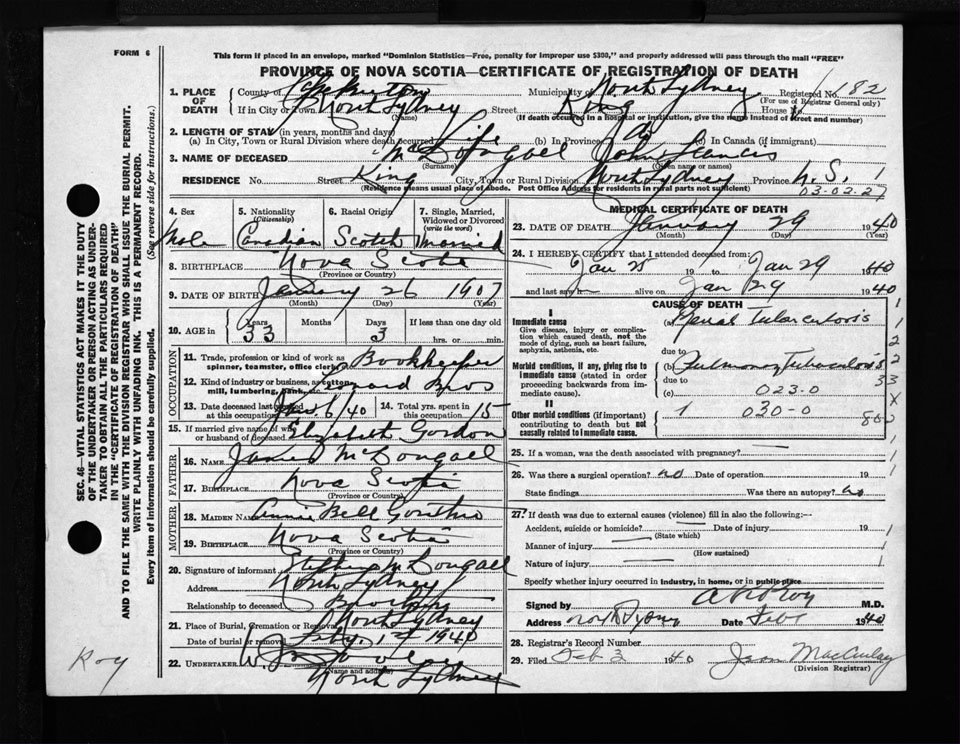 FORM 6
This form if placed in an envelope, marked "Dominion Statistics—Free, penalty for improper use $300," and properly addressed will pass through the mail "FREE"
PROVINCE OF NOVA SCOTIA—CERTIFICATE OF REGISTRATION OF DEATH
182
1. PLACE OF DEATH County of Cape Breton Municipality of North Sydney Registered No.
(For use of Registrar General only)
If in City or Town North Sydney Street King House No.
(Name) (If death occurred in a hospital or institution, give the name instead of street and number)
2. LENGTH OF STAY (in years, months and days)
(a) In City, Town or Rural Division where death occurred Life (b) In Province do (c) In Canada (if immigrant)
3. NAME OF DECEASED McDougall John Francis
(Surname) (Christian name or names)
RESIDENCE No. Street King City, Town or Rural Division North Sydney Province N.S. 1
(Residence means usual place of abode. Post Office Address for residents in rural parts not sufficient)
03.02.27
4. Sex 5. Nationality (Citizenship) 6. Racial Origin 7. Single, Married, Widowed or Divorced (write the word)
Male Canadian Scotch Married
8. BIRTHPLACE Nova Scotia
(Province or Country)
9. DATE OF BIRTH January 26 1907
(Month) (Day) (Year)
10. AGE in Years Months Days If less than one day old
33 3 hrs. or min.
OCCUPATION
11. Trade, profession or kind of work as spinner, teamster, office clerk, Bookkeeper
12. Kind of industry or business, as cotton mill, lumbering, bank, etc. Leonard Bros
13. Date deceased last worked at this occupation Jan 6/40 14. Total yrs. spent in this occupation 15
15. If married give name of wife or husband of deceased Elizabeth Gordon
FATHER
16. NAME James McDougall
17. BIRTHPLACE Nova Scotia
(Province or Country)
MOTHER
18. MAIDEN NAME Annie Bell
19. BIRTHPLACE Nova Scotia
(Province or Country)
20. Signature of informant Stephen McDougall
Address North Sydney
Relationship to deceased Brother
21. Place of Burial, Cremation or Removal North Sydney
Date of burial or removal Feby. 1st 1940
22. UNDERTAKER W.
(Name and address)
North Sydney
MEDICAL CERTIFICATE OF DEATH
23. DATE OF DEATH January 29 1940
(Month) (Day) (Year)
24. I HEREBY CERTIFY that I attended deceased from:
Jan 25 19 to Jan 29 1940
and last saw h alive on Jan 29 1940
CAUSE OF DEATH
I
Immediate cause (a) Renal Tuberculosis
Give disease, injury or complication which caused death, not the mode of dying, such as heart failure, asphyxia, asthenia, etc.
due to
Morbid conditions, if any, giving rise to immediate cause (stated in order proceeding backwards from immediate cause). (b) Pulmonary Tuberculosis
due to
(c) 023-0
II
Other morbid conditions (if important) contributing to death but not causally related to immediate cause. 1 030-0
25. If a woman, was the death associated with pregnancy?
26. Was there a surgical operation? no Date of operation 19
State findings Was there an autopsy? no
27. If death was due to external causes (violence) fill in also the following:—
Accident, suicide or homicide? Date of injury 19
(State which)
Manner of injury
(How sustained)
Nature of injury
Specify whether injury occurred in industry, in home, or in public place
Signed by M.D.
Address North Sydney Date Feb 1 1940
28. Registrar's Record Number
29. Filed Feb 3 1940
(Division Registrar)
SEC. 46—VITAL STATISTICS ACT MAKES IT THE DUTY OF THE UNDERTAKER OR PERSON ACTING AS UNDERTAKER TO OBTAIN ALL THE PARTICULARS REQUIRED IN THE "CERTIFICATE OF REGISTRATION OF DEATH" AND TO FILE THE SAME WITH THE DIVISION REGISTRAR WHO SHALL ISSUE THE BURIAL PERMIT.
WRITE PLAINLY WITH UNFADING INK. THIS IS A PERMANENT RECORD.
Every item of information should be carefully supplied. (See reverse side for instructions.)
Roy